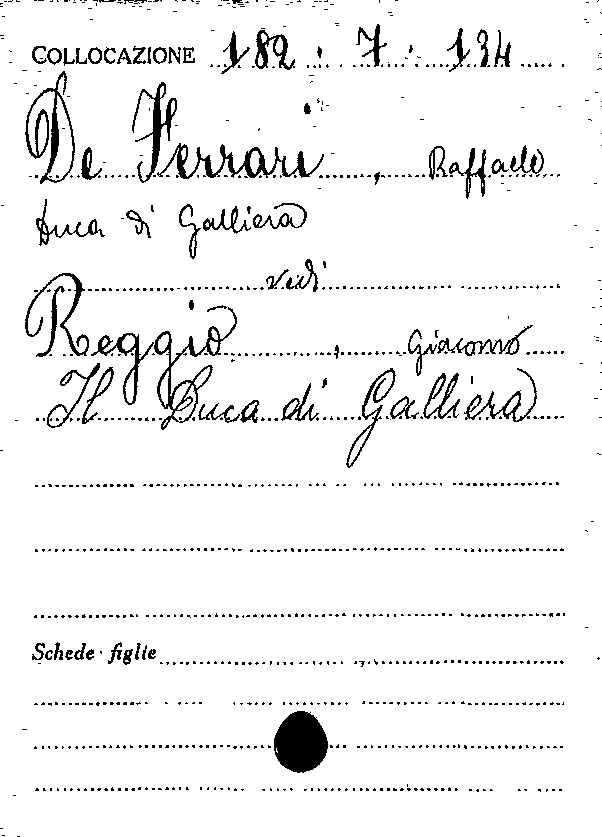 COLLOCAZIONE 182 . 7 . 134
De Ferrari , Raffaele
Duca di Galliera
vedi
Reggio , Giacomo
Il Duca di Galliera
Schede - figlie